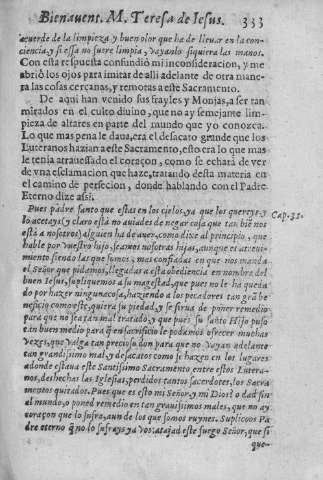 Bienauent. M. Teresa de Iesus. 333
acuerde de la limpieza y buen olor que ha de lleuar en la con-
ciencia, y si essa no fuere limpia, vayanlo siquiera las manos.
Con esta respuesta confundiò mi inconsideracion, y me
abriò los ojos para imitar de alli adelante de otra mane-
ra las cosas cercanas, y remotas a este Sacramento.
De aqui han venido sus frayles y Monjas, a ser tan
mirados en el culto diuino, que no ay semejante lim-
pieza de altares en parte del mundo que yo conozca.
Lo que mas pena le daua, era el desacato grande que los
Luteranos hazian a este Sacramento, esto era lo que mas
le tenia atrauessado el coraçon, como se echarà de ver
de vna esclamacion que haze, tratando desta materia en
el camino de perfecion, donde hablando con el Padre
Eterno dize assi,
Pues padre santo que estas en los cielos, ya que los quereys y
lo acetays (y claro està no auiades de negar cosa que tan biē nos
està a nosotros) alguien ha de auer, como dize al principio, que
hable por vuestro hijo, seamos nosotras hijas, aunque es atreui-
miento siendo las que somos, mas confiadas en que nos manda
el Señor que pidamos, llegadas a esta obediencia en nombre del
buen Iesus, supliquemos a su magestad, que pues no le ha queda
do por hazer ninguna cosa, haziendo a los pecadores tan grā be
neficio como este, quiera su piedad, y se sirua de poner remedio
para que no sea tan mal tratado, y que pues su santo Hijo puso
tan buen medio para q̄ en sacrificio le podamos ofrecer muchas
vezes, que valga tan precioso don para que no vayan adelante
tan grandissimo mal, y desacatos como se hazen en los lugares
adonde estaua este Santissimo Sacramento entre estos Lutera-
nos, deshechas las Iglesias, perdidos tantos sacerdotes, los Sacra
mentos quitados. Pues que es esto mi Señor, y mi Dios? o dad fin
al mundo, o poned remedio en tan grauissimos males, que no ay
coraçon que lo sufra, aun de los que somos ruynes. Suplicoos Pa
dre eterno q̄ no lo sufrays ya vos: atajad este fuego Señor, que si
que-
Cap. 35.